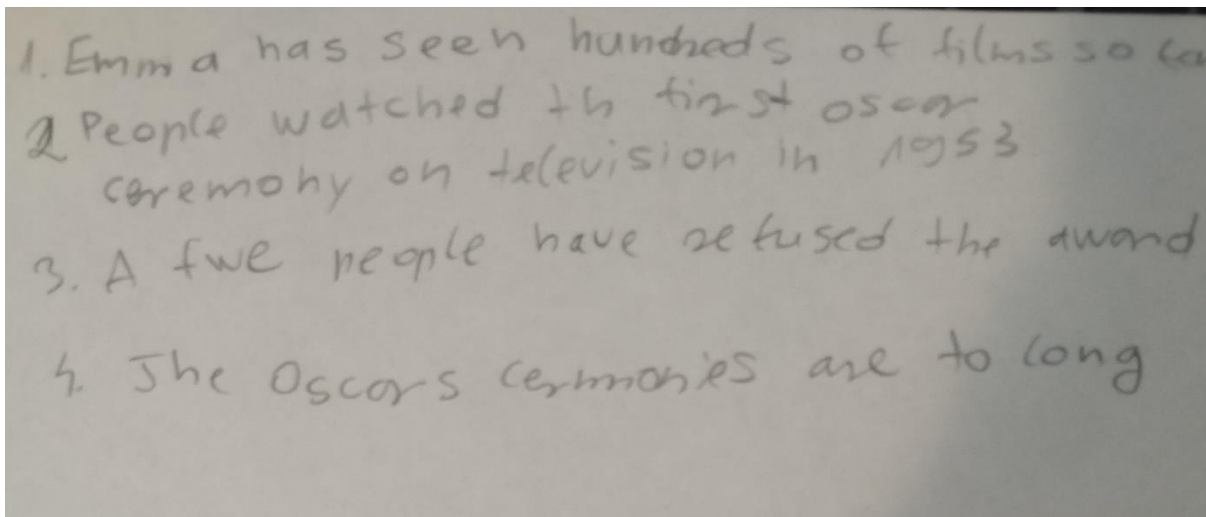 1. Emma has seen hundreds of films so fa
2 People watched th first oscar
ceremony on television in 1953
3. A fwe people have refused the award
4. The Oscars cermonies are to long